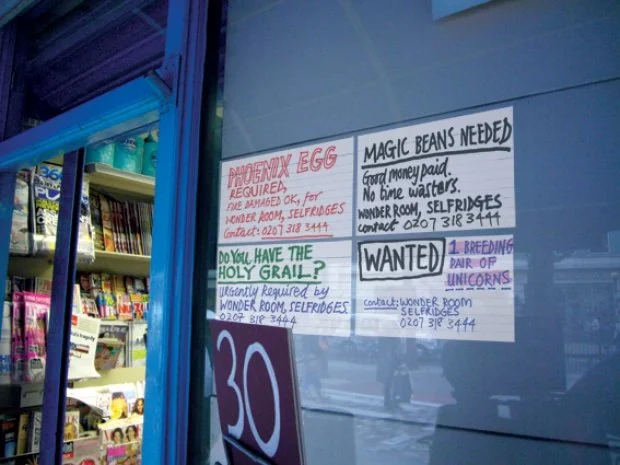 PHOENIX EGG
REQUIRED,
FIRE DAMAGED OK, for
WONDER ROOM, SELFRIDGES
Contact: 0207 318 3444
MAGIC BEANS NEEDED
Good money paid.
No time wasters.
WONDER ROOM, SELFRIDGES
contact 0207 318 3444
Do You HAVE THE
HOLY GRAIL?
URgently Required by
WONDER ROOM, SELFRIDGES
0207 318 3444
WANTED
1 BREEDING
PAIR OF
UNICORNS
contact: WONDER ROOM
SELFRIDGES
0207 318 3444
30